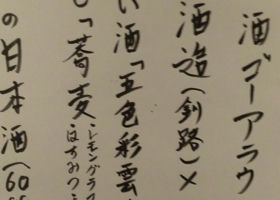 酒ゴーアラウ
酒造(釧路)×
い酒「五色彩雲
「蕎麦
レモングラス
はちみつ
の日本酒(60